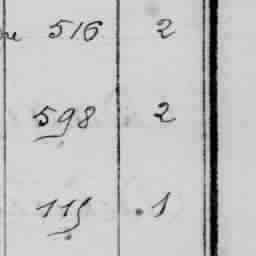 516 2
598 2
115 1